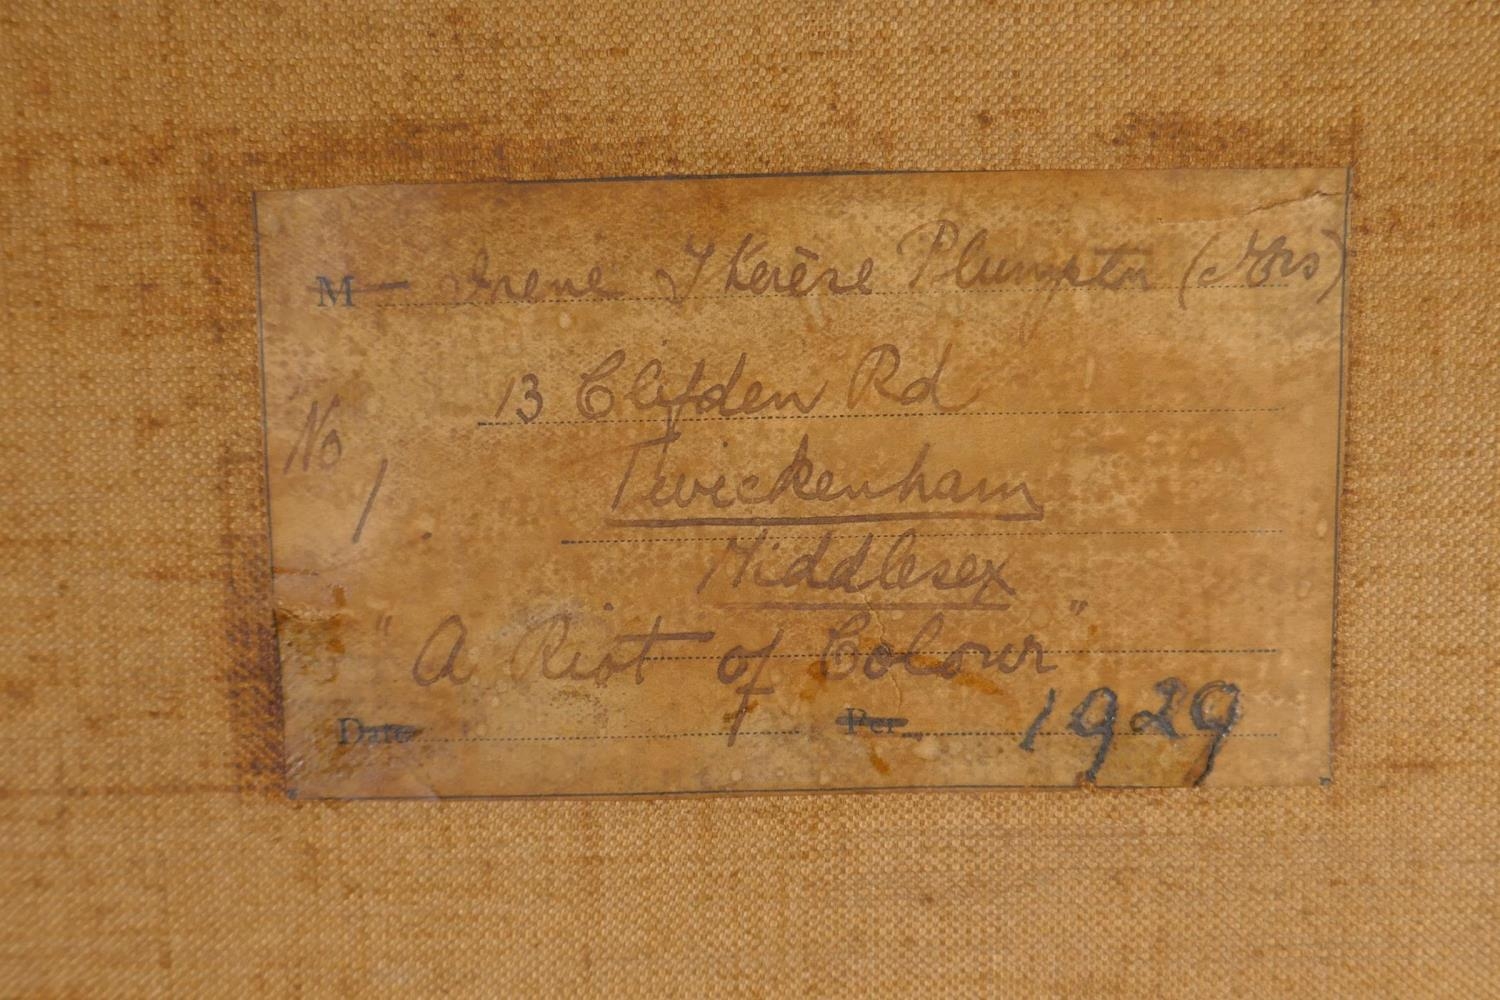 M— Irene Thérèse Plumpton (Mrs)
13 Clifden Rd
No 1.
Twickenham
Middlesex
"A Riot of Colour"
Date Per 1929